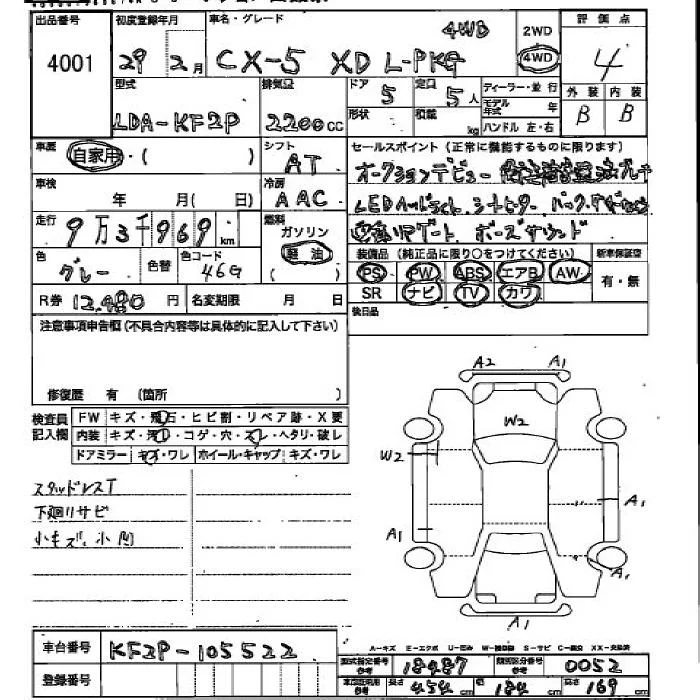 出品番号 4001
初度登録年月 29 2月
車名・グレード CX-5 XD L-PKG 4WD
2WD
4WD
評価点 4
外装 B 内装 B
型式 LDA-KF2P
排気量 2200cc
ドア 5
定員 5人
形状
積載 kg
ディーラー・並行
モデル年式 年
ハンドル 左・右
車歴 自家用・( )
シフト AT
車検 年 月( 日)
冷房 AAC
走行 9万3千969km
燃料 ガソリン 軽油
色 グレー
色替
色コード 46G
R券 12,480円
名変期限 ( 月 日)
セールスポイント(正常に機能するものに限ります)
オークションデビュー
LEDヘッドライト、シートヒーター
リアゲート ボーズサウンド
装備品(純正品に限り○をつけてください)
PS PW ABS エアB AW
SR ナビ TV カワ
新車保証空
有・無
後日品
注意事項申告欄(不具合内容等は具体的に記入して下さい)
修復歴 有 (箇所 )
検査員記入欄
FW キズ・飛石・ヒビ割・リペア跡・X要
内装 キズ・汚れ・コゲ・穴・スレ・ヘタリ・破レ
ドアミラー キズ・ワレ ホイール・キャップ キズ・ワレ
スタッドレスT
下廻リサビ
小キズ、小凹
A2 A1
W2
W2
A1
A1
A1
A1
A-キズ E-エクボ U-凹み W-補修跡 S-サビ C-腐食 XX-交換済
車台番号 KF2P-105522
登録番号
型式指定番号 参考 18487
類別区分番号 参考 0052
長さ 454cm
幅 184cm
高さ 169cm